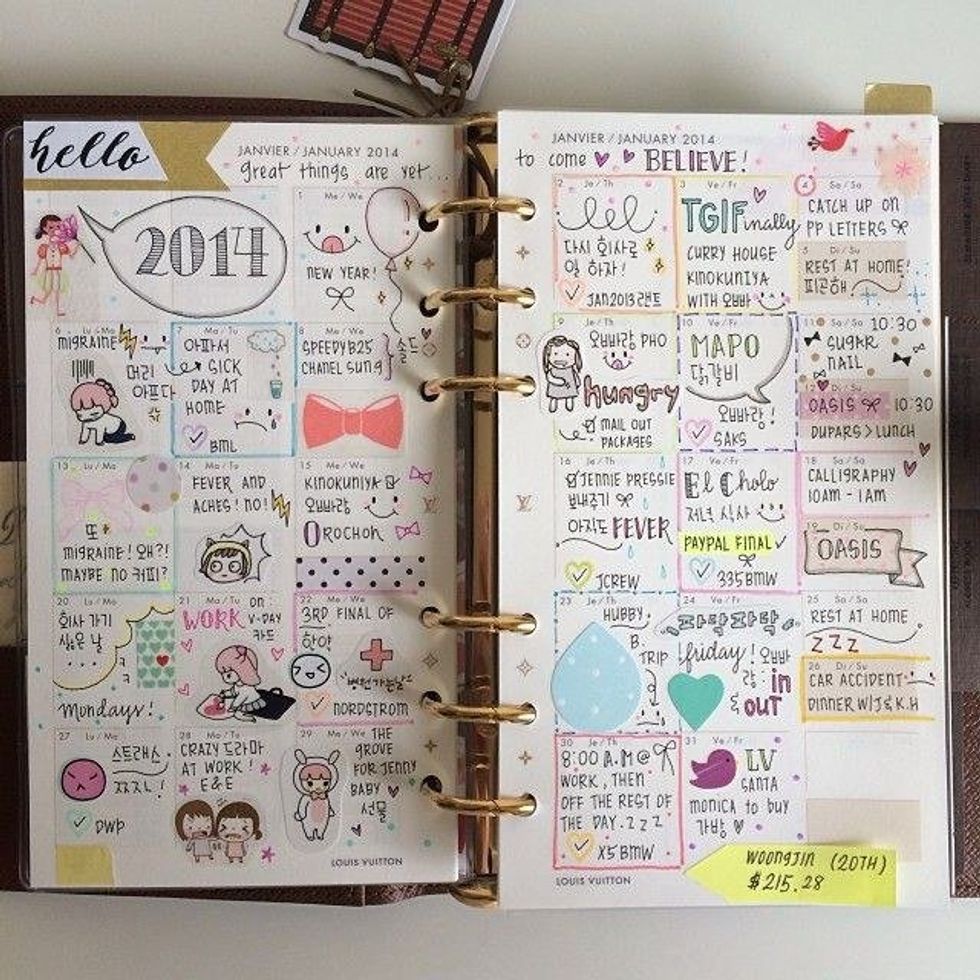 hello
JANVIER / JANUARY 2014
great things are yet...
2014
1 Me / We
NEW YEAR!
6 Lu / Mo
MIGRAINE
머리
아프다
7 Ma / Tu
아파서
SICK
DAY AT
HOME
BML
8 Me / We
SPEEDY B25
CHANEL SUNG
솔드
13 Lu / Mo
또
MIGRAINE! 왜?!
MAYBE NO 커피?
14 Ma / Tu
FEVER AND
ACHES! NO!
15 Me / We
KINOKUNIYA
오빠랑
OROCHON
20 Lu / Mo
회사 가기
싫은 날
...
ㅋ
ㅋ
Mondays!
21 Ma / Tu
WORK ON
V-DAY
카드
22 Me / We
3RD FINAL OF
하아
병원가는날
NORDSTROM
27 Lu / Mo
스트레스
짜지!
DWP
28 Ma / Tu
CRAZY 드라마
AT WORK!
E&E
29 Me / We
THE
GROVE
FOR JENNY
BABY
선물
LOUIS VUITTON
JANVIER / JANUARY 2014
to come BELIEVE!
2 Je / Th
다시 회사로
일 하자!
JAN2013 랜트
3 Ve / Fr
TGIFinally
CURRY HOUSE
KINOKUNIYA
WITH 오빠
4 Sa / Sa
CATCH UP ON
PP LETTERS
5 Di / Su
REST AT HOME!
피곤해
9 Je / Th
오빠랑 PHO
hungry
MAIL OUT
PACKAGES
10 Ve / Fr
MAPO
닭갈비
오빠랑!
SAKS
11 Sa / Sa
10:30
SUGAR
NAIL
12 Di / Su
OASIS 10:30
DUPARS > LUNCH
16 Je / Th
JENNIE PRESSIE
보내주기
아직도 FEVER
JCREW
17 Ve / Fr
El Cholo
저녁 식사
PAYPAL FINAL
335BMW
18 Sa / Sa
CALLIGRAPHY
10AM - 1AM
19 Di / Su
OASIS
23 Je / Th
HUBBY
B.
TRIP
24 Ve / Fr
friday! 오빠
랑
in
&
OUT
25 Sa / Sa
REST AT HOME
ZZZ
26 Di / Su
CAR ACCIDENT
DINNER W/J & K.H
30 Je / Th
8:00 A.M @
WORK, THEN
OFF THE REST OF
THE DAY. ZZZ
X5 BMW
31 Ve / Fr
LV
SANTA
monica to buy
가방
LOUIS VUITTON
WOONGJIN (20TH)
$215.28